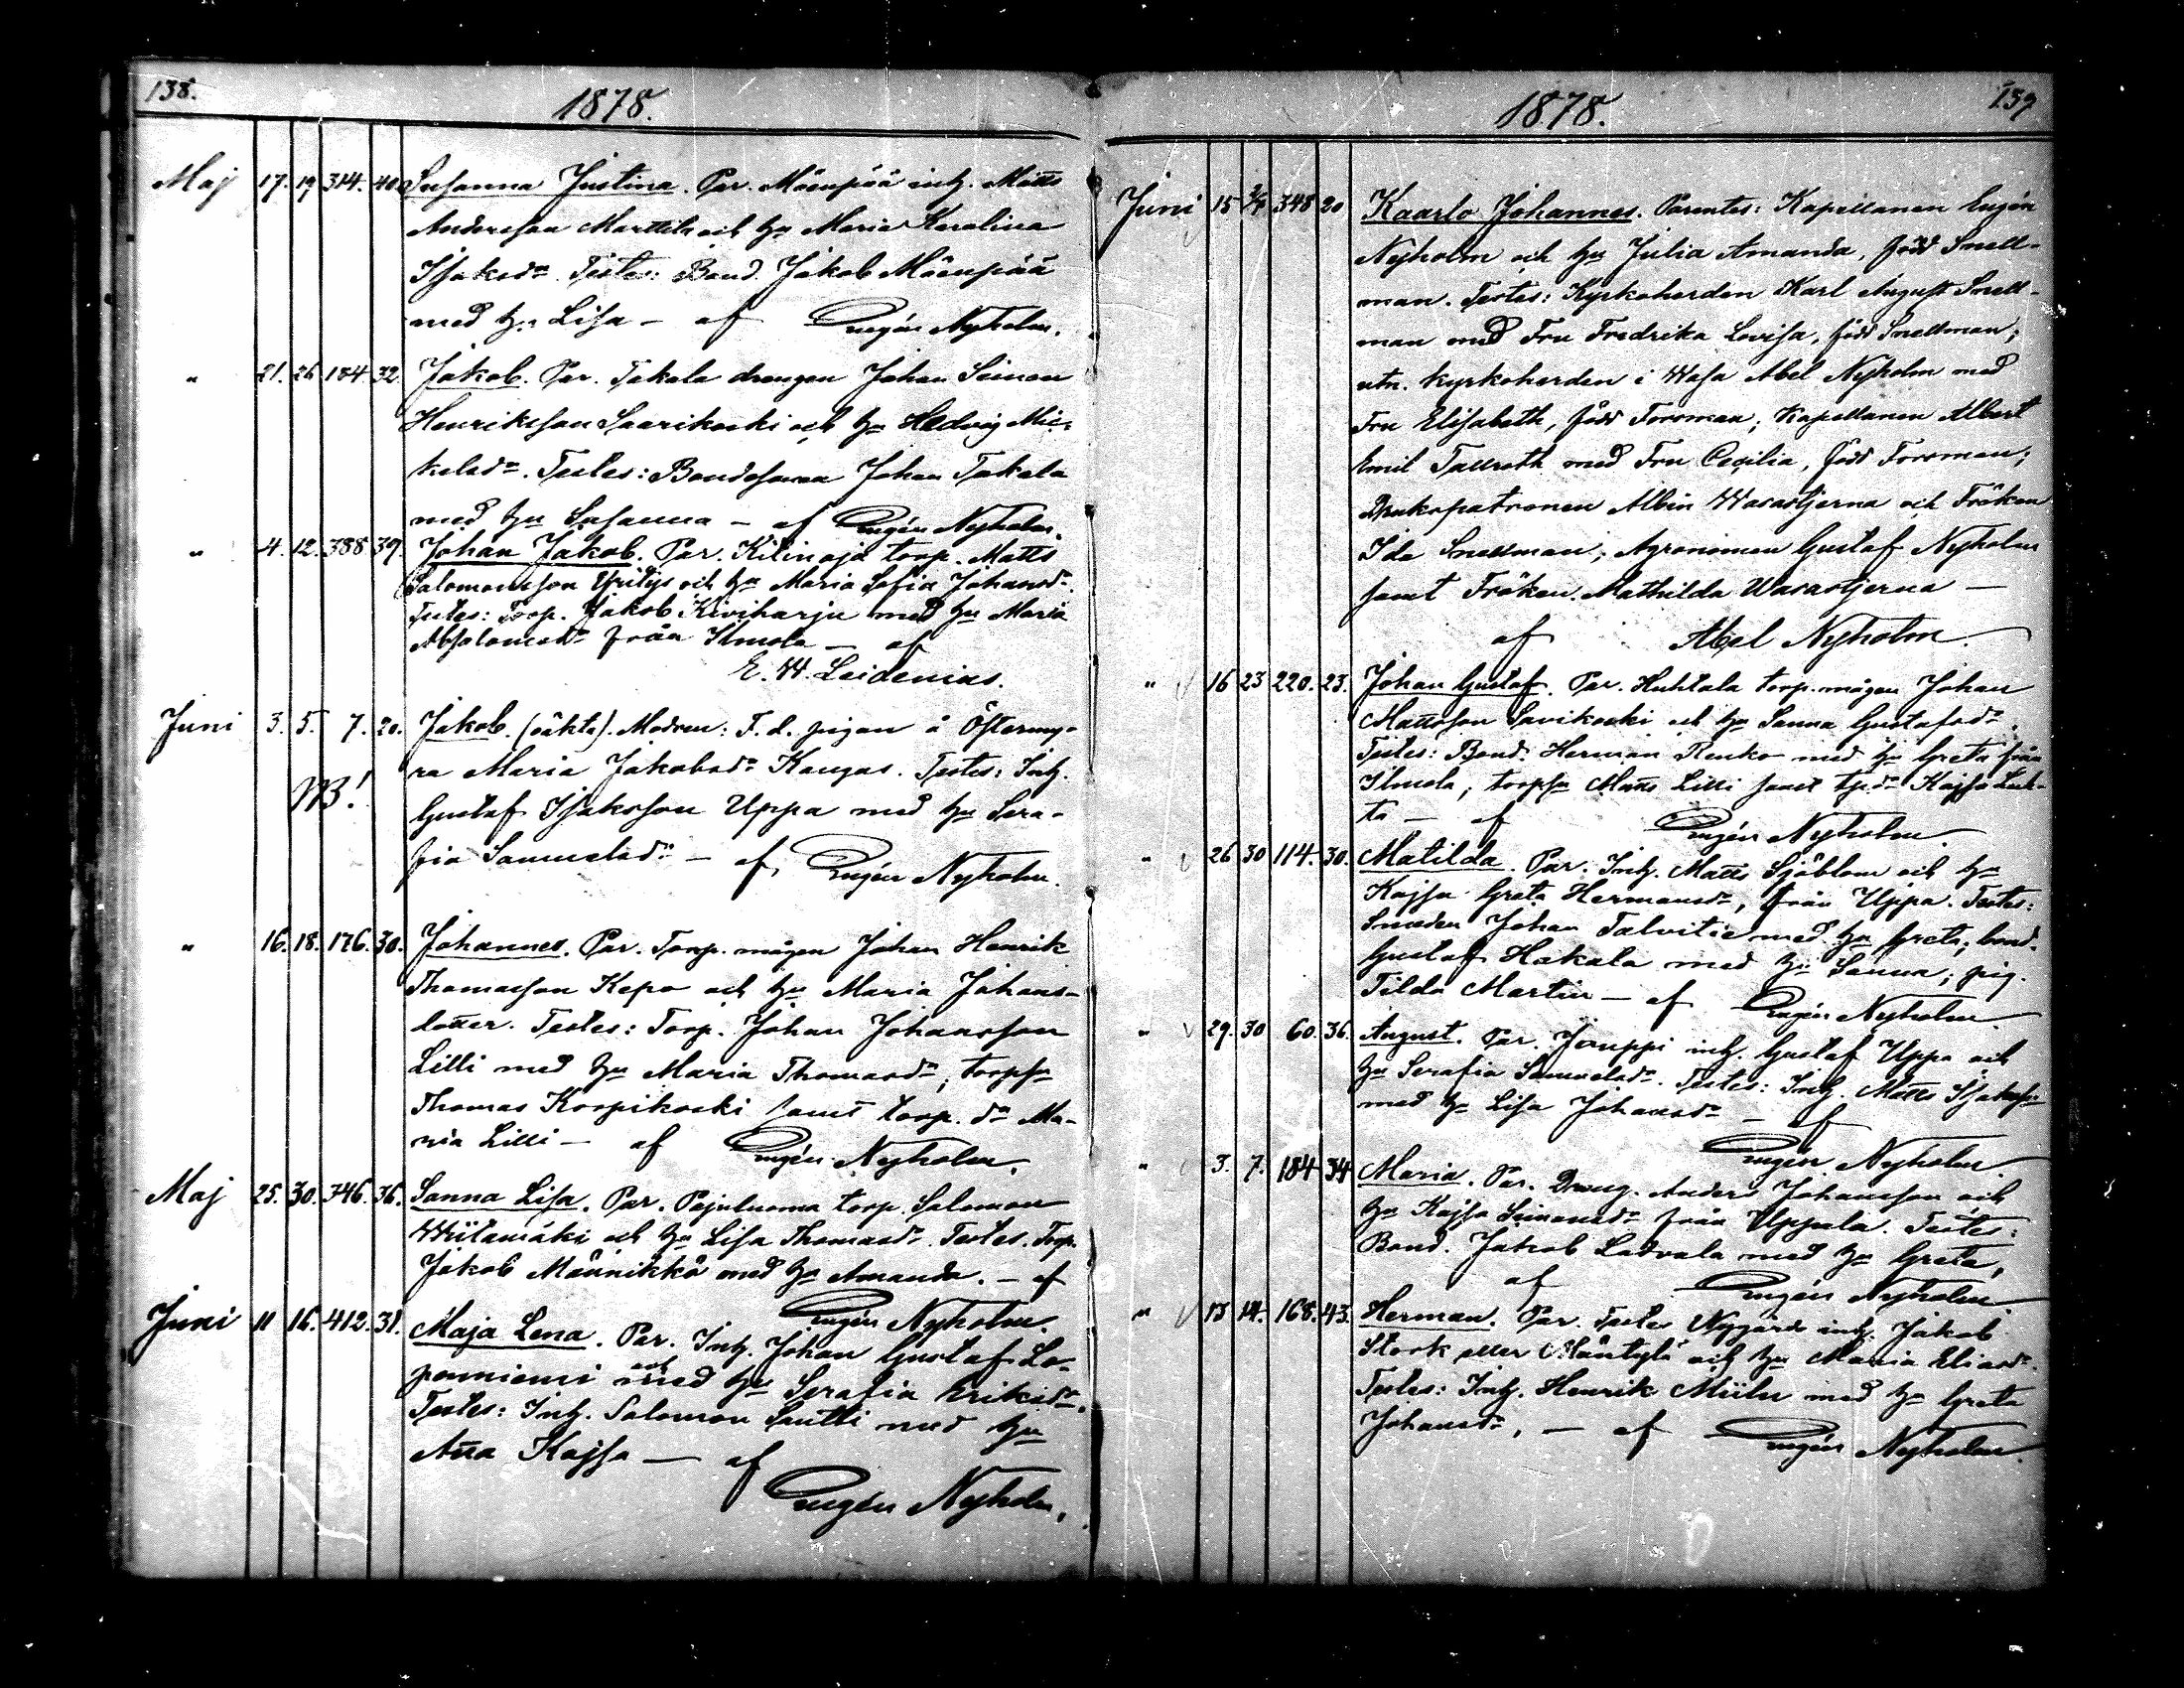 138.
1878.
Maj 17. 19 314. 40 Susanna Justina. Par. Mäenpää inh. Matts
Andersson Marttila och hu Maria Karolina
Isaksdr. Testes: Bond. Jakob Mäenpää
med hu Lisa — af Eugén Nyholm.
" 21. 26 184 32. Jakob. Par. Takala drengen Johan Simon
Henriksson Saarikoski och hu Hedvig Mic-
kelsdr. Testes: Bondesonen Johan Takala
med hu Susanna — af Eugén Nyholm.
" 4. 12. 388 39. Johan Jakob. Par. Kitinoja torp. Matts
Salomonsson Yritys och hu Maria Sofia Johansdr.
Testes: Torp. Jakob Kiviharju med hu Maria
Absalomsdr från Ilmola — af
E. W. Leidenius.
Juni 3. 5. 7. 20. Jakob. (oäkta). Modren: F. d. pigan å Östermy-
ra Maria Jakobsdr Kangas. Testes: Inh.
NB! Gustaf Isaksson Uppa med hu Sera-
fia Samuelsdr — af Eugén Nyholm.
" 16. 18. 176. 30. Johannes. Par. Torp. mågen Johan Henrik
Thomasson Kepo och hu Maria Johans-
dotter. Testes: Torp. Johan Johansson
Lilli med hu Maria Thomasdr; torpsn
Thomas Korpikoski samt torp. dr Ma-
ria Lilli — af Eugén Nyholm.
Maj 25. 30. 346. 36. Sanna Lisa. Par. Pajuluoma torp. Salomon
Wiitamäki och hu Lisa Thomasdr. Testes. Torp.
Jakob Männikkö med hu Amanda. — af
Eugén Nyholm.
Juni 11 16. 412. 31. Maja Lena. Par. Inh. Johan Gustaf Lo-
panniemi och med hu Serafia Eriksdr.
Testes: Inh. Salomon Santti med hu
Anna Kajsa — af
Eugén Nyholm.
139
1878.
Juni 15 2/7 348 20 Kaarlo Johannes. Parentes: Kapellanen Eugén
Nyholm och hu Julia Amanda, född Snell-
man. Testes: Kyrkoherden Karl August Snell-
man med Fru Fredrika Lovisa, född Snellman;
utn. kyrkoherden i Wasa Abel Nyholm med
Fru Elisabeth, född Forsman; Kapellanen Albert
Emil Tallroth med Fru Cecilia, född Forsman;
Brukspatronen Albin Wasastjerna och Fröken
Ida Snellman; Agronomen Gustaf Nyholm
samt Fröken Mathilda Wasastjerna —
af Abel Nyholm.
" 16 23 220. 23. Johan Gustaf. Par. Huhtala torp. mågen Johan
Mattsson Savikoski och hu Sanna Gustafsdr.
Testes: Bond. Herman Renko med hu Greta från
Ilmola; torpsn Matts Lilli samt tpdr Kajsa Luh-
ta — af Eugén Nyholm
" 26 30 114. 30. Matilda. Par. Inh. Matts Sjöblom och hu
Kajsa Greta Hermansdr, från Uppa. Testes:
Smeden Johan Talvitie med hu Greta; bond.
Gustaf Hakala med hu Sanna; pig.
Tilda Martin — af Eugén Nyholm
" 29. 30 60. 36. August. Par. Jouppi inh. Gustaf Uppa och
hu Serafia Samuelsdr. Testes: Inh. Matts Isakssn
med hu Lisa Johansdr — af
Eugén Nyholm
" 3. 7. 184 34 Maria. Par. Dräng. Anders Johansson och
hu Kajsa Simonsdr från Uppula. Testes:
Bond. Jakob Ladvala med hu Greta,
af Eugén Nyholm.
" 13 14. 168. 43. Herman. Par. Nygårds inh. Jakob
Stork eller Mäntylä och hu Maria Eliasdr.
Testes: Inh. Henrik Miilu med hu Greta
Johansdr, — af Eugén Nyholm.